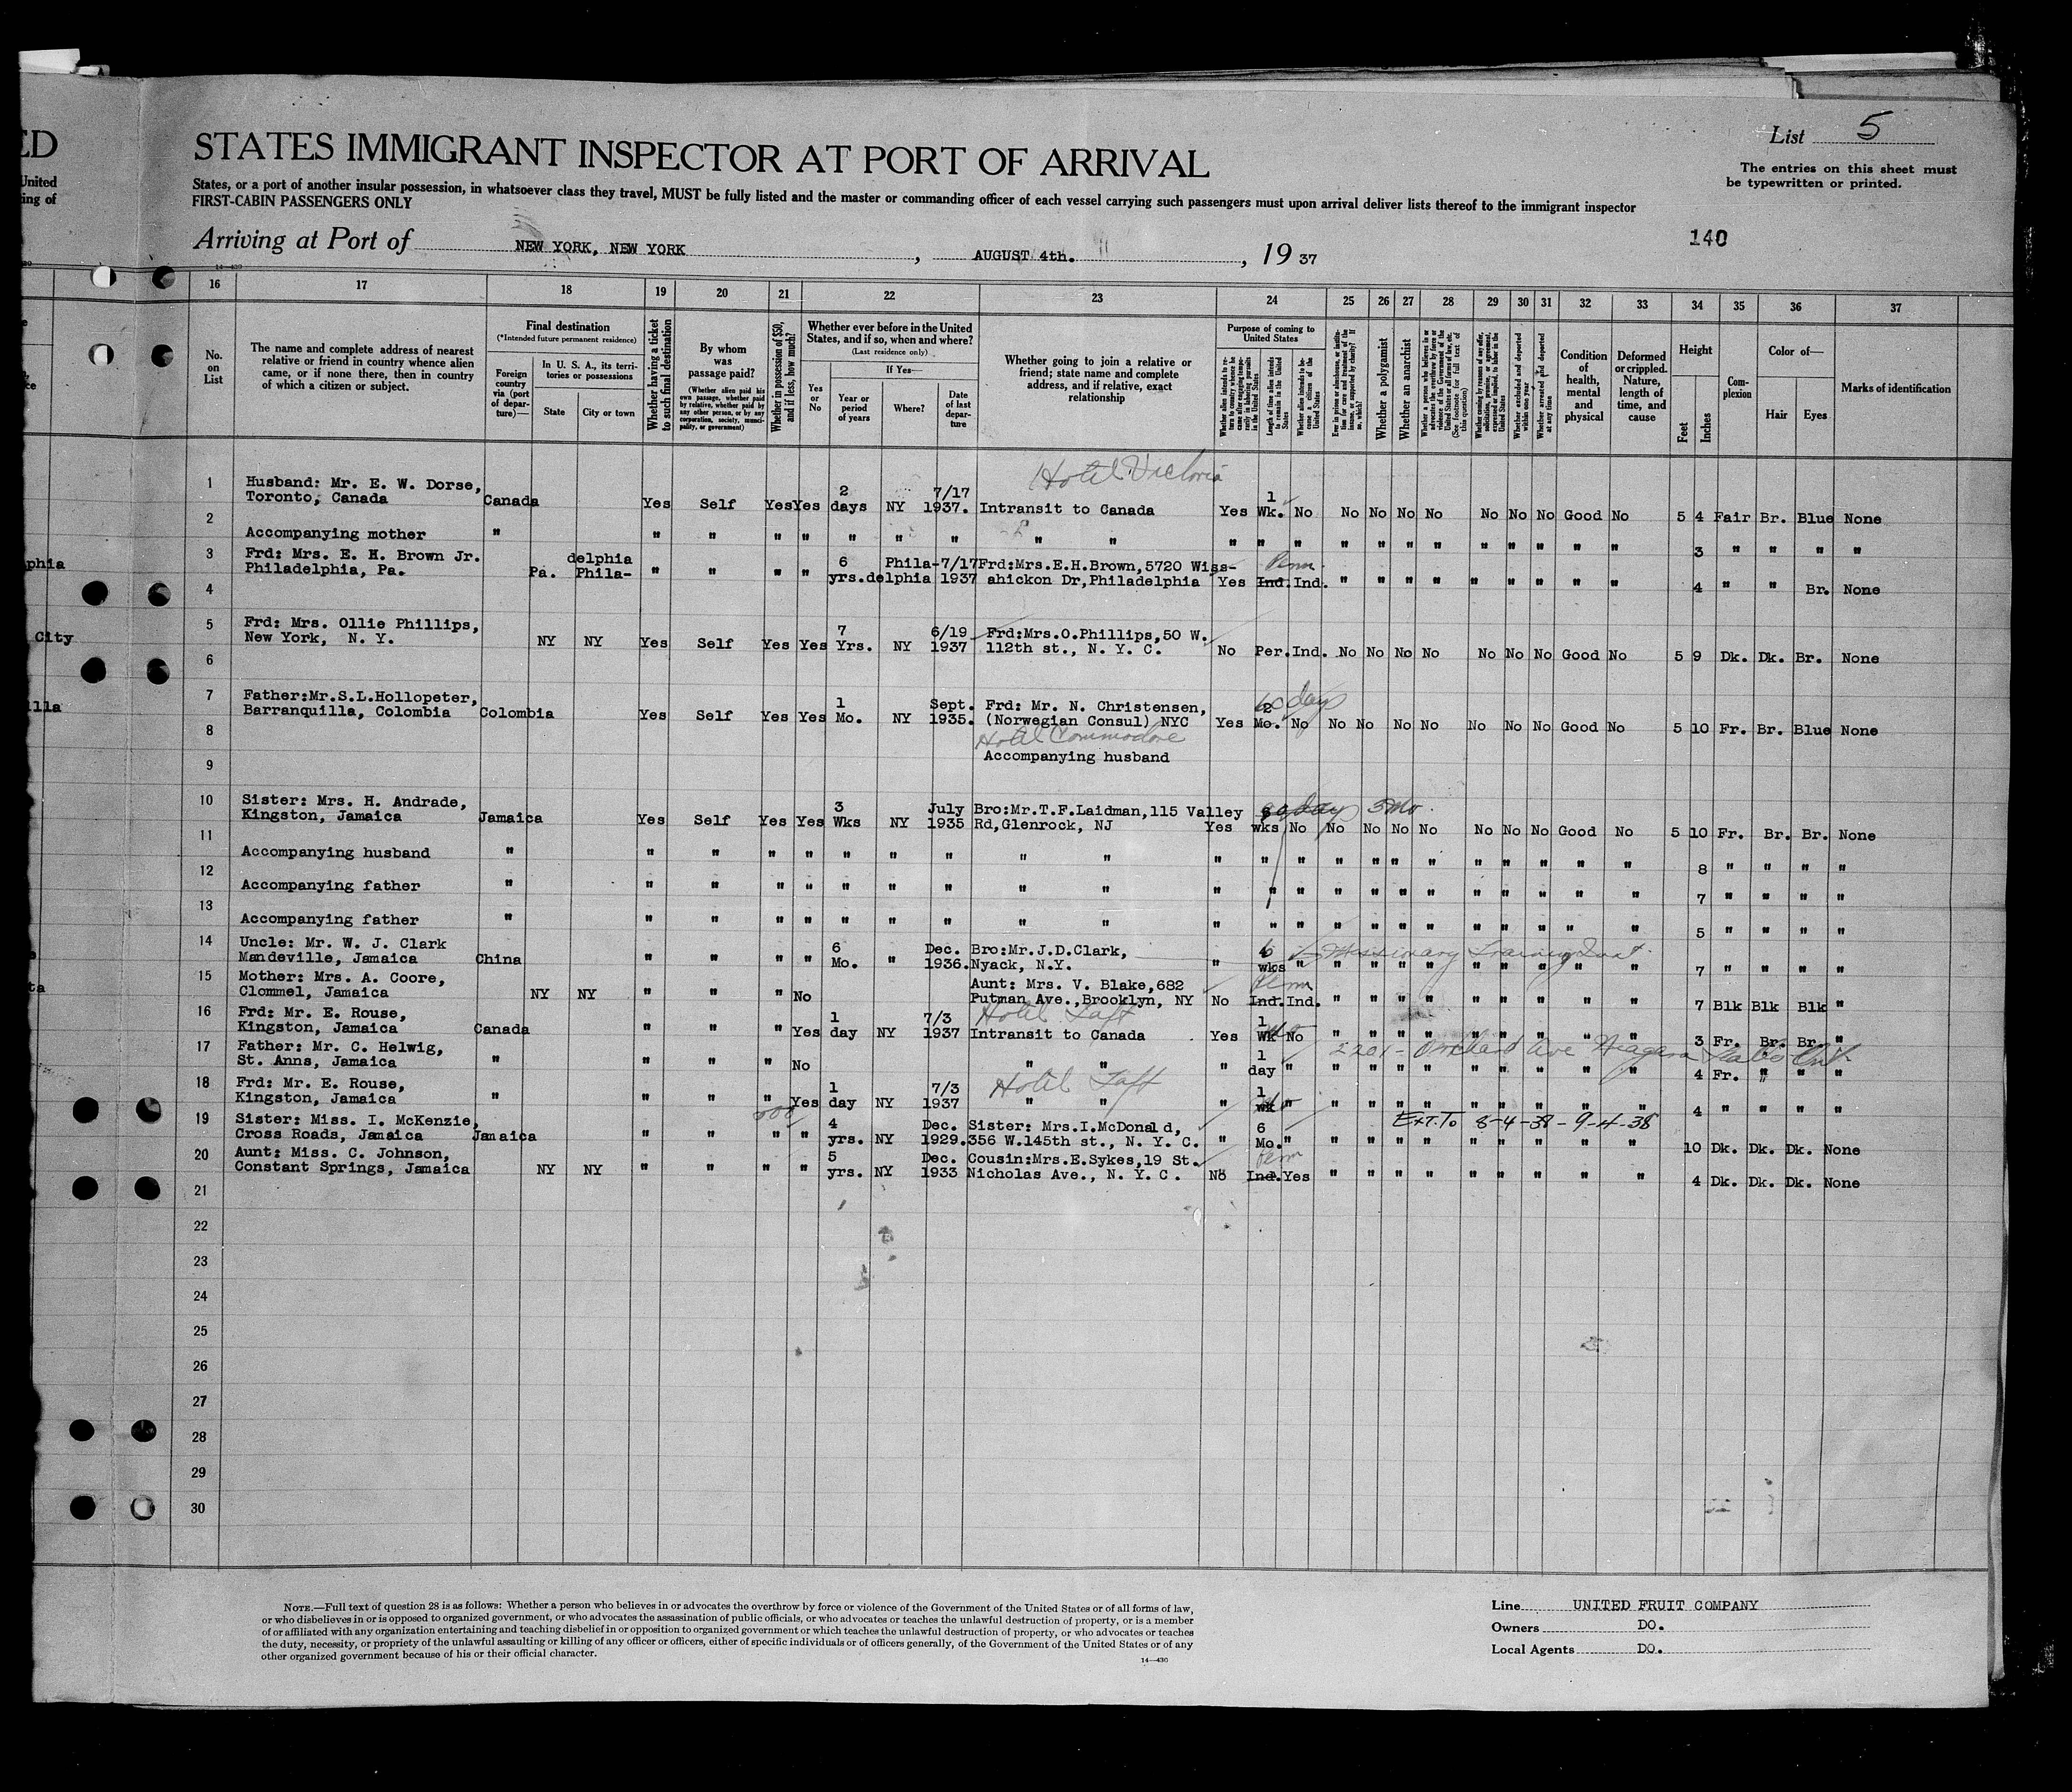 ED
United
ing of
STATES IMMIGRANT INSPECTOR AT PORT OF ARRIVAL
List 5
The entries on this sheet must
be typewritten or printed.
States, or a port of another insular possession, in whatsoever class they travel, MUST be fully listed and the master or commanding officer of each vessel carrying such passengers must upon arrival deliver lists thereof to the immigrant inspector
FIRST-CABIN PASSENGERS ONLY
Arriving at Port of NEW YORK, NEW YORK, AUGUST 4th., 19 37
140
14—430
16 17 18 19 20 21 22 23 24 25 26 27 28 29 30 31 32 33 34 35 36 37
No. on List
The name and complete address of nearest relative or friend in country whence alien came, or if none there, then in country of which a citizen or subject.
Final destination
(*Intended future permanent residence)
Foreign country via (port of departure)—
In U. S. A., its territories or possessions
State
City or town
Whether having a ticket to such final destination
By whom was passage paid?
(Whether alien paid his own passage, whether paid by relative, whether paid by any other person, or by any corporation, society, municipality, or government)
Whether in possession of $50, and if less, how much?
Whether ever before in the United States, and if so, when and where?
(Last residence only)
Yes or No
If Yes—
Year or period of years
Where?
Date of last departure
Whether going to join a relative or friend; state name and complete address, and if relative, exact relationship
Purpose of coming to United States
Length of time alien intends to remain in the United States
Whether alien intends to become a citizen of the United States
Whether a polygamist
Whether an anarchist
Whether excluded and deported within one year
Whether arrested and deported at any time
Condition of health, mental and physical
Deformed or crippled. Nature, length of time, and cause
Height
Feet
Inches
Complexion
Color of—
Hair
Eyes
Marks of identification
Hotel Victoria
1 Husband: Mr. E. W. Dorse, 2 7/17 1
Toronto, Canada Canada Yes Self Yes Yes days NY 1937. Intransit to Canada Yes Wk. No No No No No No No No Good No 5 4 Fair Br. Blue None
2 Accompanying mother " " " " " " " " " " " " " " " " " " " " " " " 3 " " " "
3 Frd: Mrs. E. H. Brown Jr. delphia 6 Phila- 7/17 Frd:Mrs.E.H.Brown,5720 Wiss- Perm
Philadelphia, Pa. Pa. Phila- " " " " yrs. delphia 1937 ahickon Dr,Philadelphia Yes Ind. Ind. " " " " " " " " " 4 " " Br. None
4
5 Frd: Mrs. Ollie Phillips, 7 6/19 Frd:Mrs.O.Phillips,50 W.
New York, N. Y. NY NY Yes Self Yes Yes Yrs. NY 1937 112th st., N. Y. C. No Per. Ind. No No No No No No No Good No 5 9 Dk. Dk. Br. None
6
7 Father:Mr.S.L.Hollopeter, 1 Sept. Frd: Mr. N. Christensen, 2 60 days
Barranquilla, Colombia Colombia Yes Self Yes Yes Mo. NY 1935. (Norwegian Consul) NYC Yes Mo. No No No No No No No No Good No 5 10 Fr. Br. Blue None
8 Hotel Commodore
Accompanying husband
9
10 Sister: Mrs. H. Andrade, 3 July Bro:Mr.T.F.Laidman,115 Valley 3 Mo.
Kingston, Jamaica Jamaica Yes Self Yes Yes Wks NY 1935 Rd,Glenrock, NJ Yes wks No No No No No No No No Good No 5 10 Fr. Br. Br. None
11 Accompanying husband " " " " " " " " " " " " " " " " " " " " " " 8 " " " "
12 Accompanying father " " " " " " " " " " " " " " " " " " " " " " 7 " " " "
13 Accompanying father " " " " " " " " " " " " " " " " " " " " " " 5 " " " "
14 Uncle: Mr. W. J. Clark 6 Dec. Bro:Mr.J.D.Clark, 6 Missionary Training Inst.
Mandeville, Jamaica China " " " " Mo. " 1936. Nyack, N.Y. " wks " " " " " " " " " " 7 " " " "
15 Mother: Mrs. A. Coore, Aunt: Mrs. V. Blake,682 Perm
Clommel, Jamaica NY NY " " " No Putman Ave.,Brooklyn, NY No Ind. Ind. " " " " " " " " " 7 Blk Blk Blk "
16 Frd: Mr. E. Rouse, 1 7/3 Hotel Taft 1
Kingston, Jamaica Canada " " " Yes day NY 1937 Intransit to Canada Yes Wk No " " " " " " " " " 3 Fr. Br. Br. "
17 Father: Mr. C. Helwig, 1 2201 - Orchard Ave Niagara Falls Ont.
St. Anns, Jamaica " " " " No " " " day " " " " " " " " " " 4 Fr. " " "
18 Frd: Mr. E. Rouse, 1 7/3 Hotel Taft 1
Kingston, Jamaica " " " " Yes day NY 1937 " " " wk " " " " " " " " " " 4 " " " "
19 Sister: Miss. I. McKenzie, 4 Dec. Sister: Mrs.I.McDonald, 6 Ext. To 8-4-38 - 9-4-38
Cross Roads, Jamaica Jamaica " " " " yrs. NY 1929. 356 W.145th st., N. Y. C. " Mo. " " " " " " " " " " 10 Dk. Dk. Dk. None
20 Aunt: Miss. C. Johnson, 5 Dec. Cousin:Mrs.E.Sykes,19 St. Perm
Constant Springs, Jamaica NY NY " " " " yrs. NY 1933 Nicholas Ave., N. Y. C. No Ind. Yes " " " " " " " " " 4 Dk. Dk. Dk. None
21
22
23
24
25
26
27
28
29
30
phia
City
lla
ta
NOTE.—Full text of question 28 is as follows: Whether a person who believes in or advocates the overthrow by force or violence of the Government of the United States or of all forms of law,
or who disbelieves in or is opposed to organized government, or who advocates the assassination of public officials, or who advocates or teaches the unlawful destruction of property, or is a member
of or affiliated with any organization entertaining and teaching disbelief in or opposition to organized government or which teaches the unlawful destruction of property, or who advocates or teaches
the duty, necessity, or propriety of the unlawful assaulting or killing of any officer or officers, either of specific individuals or of officers generally, of the Government of the United States or of any
other organized government because of his or their official character.
14—430
Line UNITED FRUIT COMPANY
Owners DO.
Local Agents DO.